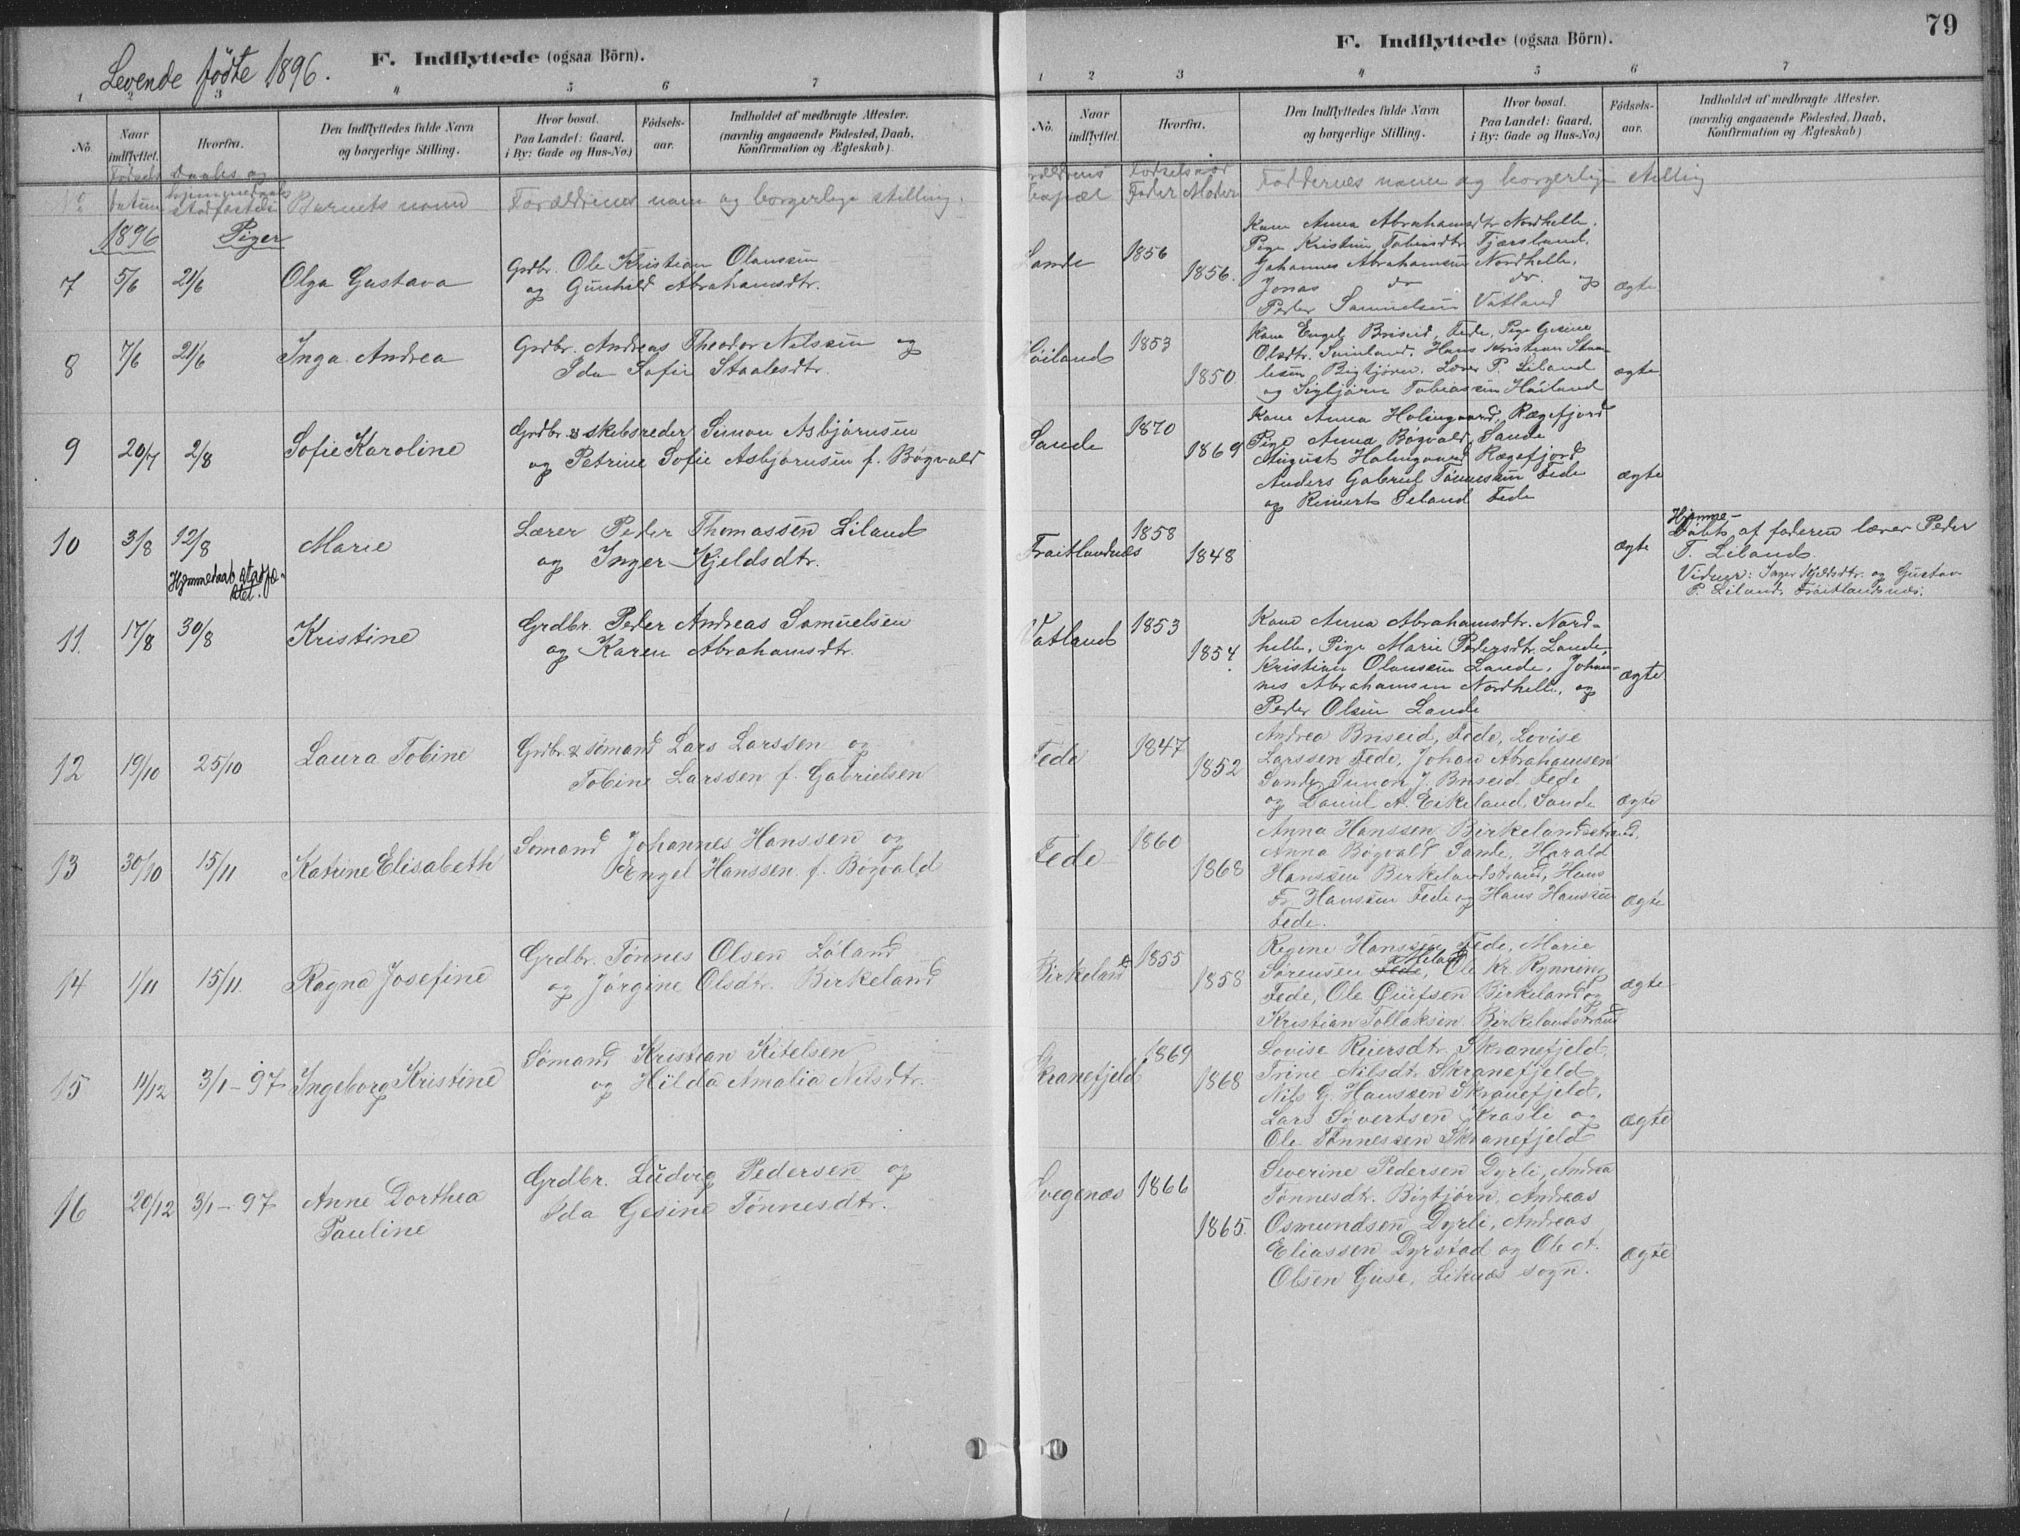 Levende fødte 1896.
F. Indflyttede (ogsaa Börn).
1 2 3 4 5 6 7
No.
Naar indflyttet.
Hvorfra.
Den Indflyttedes fulde Navn og borgerlige Stilling.
Hvor bosat. Paa Landet: Gaard, i By: Gade og Hus-No.)
Födsels-aar.
Indholdet af medbragte Attester. (navnlig angaaende Födested, Daab, Konfirmation og Ægteskab).
Fødsels datum
Daabs og
Barnets navn
Forældrenes navn og borgerlige stilling.
1896 Piger
7 5/6 21/6 Olga Gustava
Grdbr. Ole Kristian Olaussen
og Gunhild Abrahamsdtr.
8 7/6 21/6 Inga Andrea
Grdbr. Andreas Theodor Nilssen og
Ida Sofie Staalesdtr.
9 20/7 2/8 Sofie Karoline
Grdbr. & skibsreder Simon Asbjørnsen
og Petrine Sofie Asbjørnsen f. Bøgvald
10 3/8 12/8 Marie
Hjemmedaab stadfæ-
stet.
Lærer Peder Thomassen Liland
og Inger Kjeldsdtr.
11. 17/8 30/8 Kristine
Grdbr. Peder Andreas Samuelsen
og Karen Abrahamsdtr.
12 19/10 25/10 Laura Tobine
Grdbr. & sømand Lars Larssen og
Tobine Larssen f. Gabrielsen
13 30/10 15/11 Katrine Elisabeth
Sømand Johannes Hanssen og
Engel Hanssen f. Bøgvald
14 1/11 15/11. Ragna Josefine
Grdbr. Tønnes Olsen Løland
og Jørgine Olsdtr. Birkeland
15 11/12 3/1-97 Ingeborg Kristine
Sømand Kristian Kitelsen
og Hilda Amalia Nilsdtr.
16 20/12 3/1-97 Anne Dorthea
Pauline
Grdbr. Ludvig Pedersen og
Ida Gesine Tønnesdtr.
79
F. Indflyttede (ogsaa Börn).
1 2 3 4 5 6 7
No.
Naar indflyttet.
Hvorfra.
Den Indflyttedes fulde Navn og borgerlige Stilling.
Hvor bosat. Paa Landet: Gaard, i By: Gade og Hus-No.)
Födsels-aar.
Indholdet af medbragte Attester. (navnlig angaaende Födested, Daab, Konfirmation og Ægteskab)
Forældrenes Fødselsaar
Bopæl Fader Moder
Faddernes navn og borgerlige stilling
Sande 1856 1856.
Kone Anna Abrahamsdtr Nordhelle,
Pige Kristine Tobiasdtr. Fjærsland,
Johannes Abrahamsen Nordhelle,
Jonas do do. og
Peder Samuelsen Vatland
ægte
Høiland 1853 1850
Kone Engel Briseid, Fede, Pige Gesine
Olsdtr. Hans Kristian Staa-
lesen Bigtjørn. Lærer P. Liland
og Sigbjørn Tobiassen Høiland
ægte
Sande 1870 1869
Kone Anna Holmgaard, Rægefjord
Pige Anna Bøgvald, Sande
August Holmgaard Rægefjord
Anders Gabriel Tønnessen Fede
og Reinert Seland Fede
ægte
Fraitlandnæs 1858 1848
ægte
Hjemme-
døbt af faderen lærer Peder
T. Liland.
Vidner: Inger Kjeldsdtr. og Gustav
P. Liland, Fraitlandsnæs.
Vatland 1853 1854.
Kone Anna Abrahamsdtr. Nord-
helle, Pige Marie Pedersdtr. Lande,
Kristian Olaussen Lande, Johan-
nes Abrahamsen Nordhelle, og
Peder Olsen Lande
ægte
Fede 1847 1852
Andrea Briseid, Fede, Lovise
Larssen Fede, Johan Abrahamsen
Sande, Simon J. Briseid Fede
og Daniel A. Eikeland, Sande
ægte
Fede 1860 1868
Anna Hanssen Birkelandsstrand,
Anna Bøgvald Sande, Harald
Hanssen Birkelandstrand, Hans
Fr. Hanssen Fede og Hans Hanssen
Fede.
ægte
Birkeland 1855 1858
Regine Hanssen Fede, Marie
Sørensen Fede, Ole Kr. Rynning
Fede, Ole Birkeland og
Kristian Tollaksen Birkelandstrand
ægte
Skranefjeld 1869 1868
Lovise Reiersdtr. Skranefjeld,
Trine Nilsdtr. Skranefjeld,
Nils G. Hanssen Skranefjeld,
Lars Syvertsen Krasli og
Ole Tønnessen Skranefjeld
ægte
Svegenæs 1866 1865.
Severine Pedersen Dyrli, Andrea
Tønnesdtr. Bøgtjørn, Andreas
Osmundsen Dyrli, Andreas
Eliassen Dyrstad og Ole A.
Olsen Guse, Liknæs sogn.
ægte